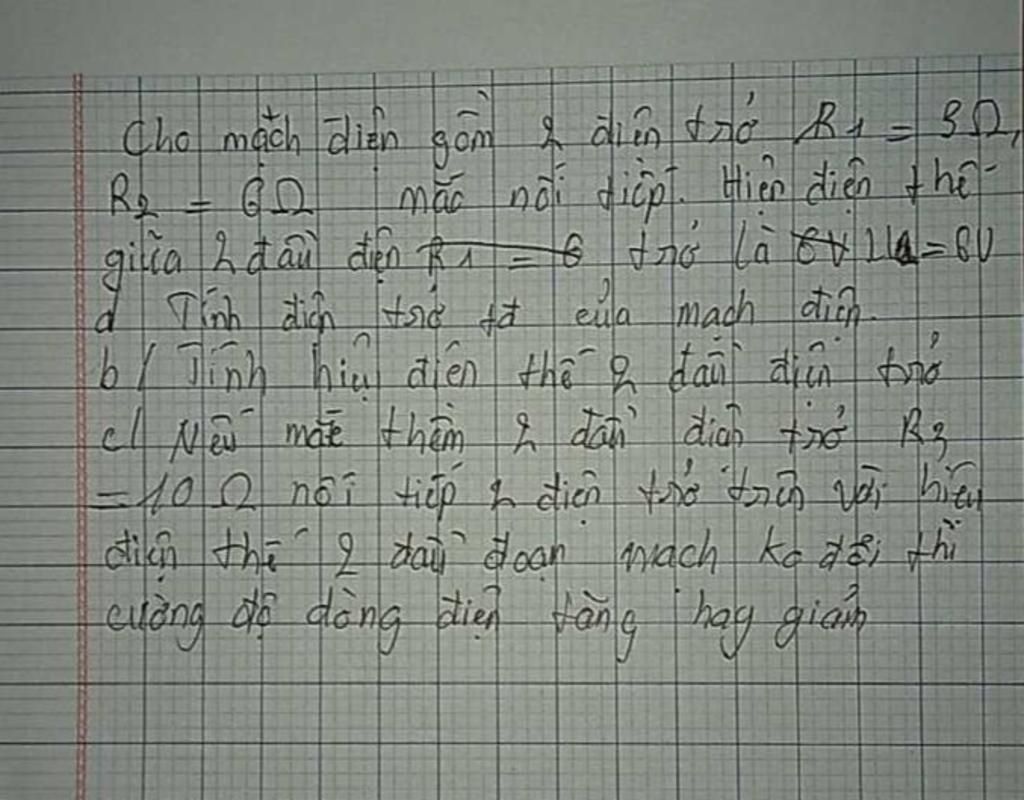 Cho mạch điện gồm 2 điện trở R1 = 3Ω,
R2 = 6Ω mắc nối tiếp. Hiện điện thế
giữa 2 đầu điện R1 = 6 trở là 6V U1 = 6V
a/ Tính điện trở tđ của mạch điện.
b/ Tính hiệu điện thế 2 đầu điện trở
c/ Nếu mắc thêm 2 đầu điện trở R3
= 10 Ω nối tiếp 2 điện trở trên với hiệu
điện thế 2 đầu đoạn mạch ko đổi thì
cường độ dòng điện tăng hay giảm